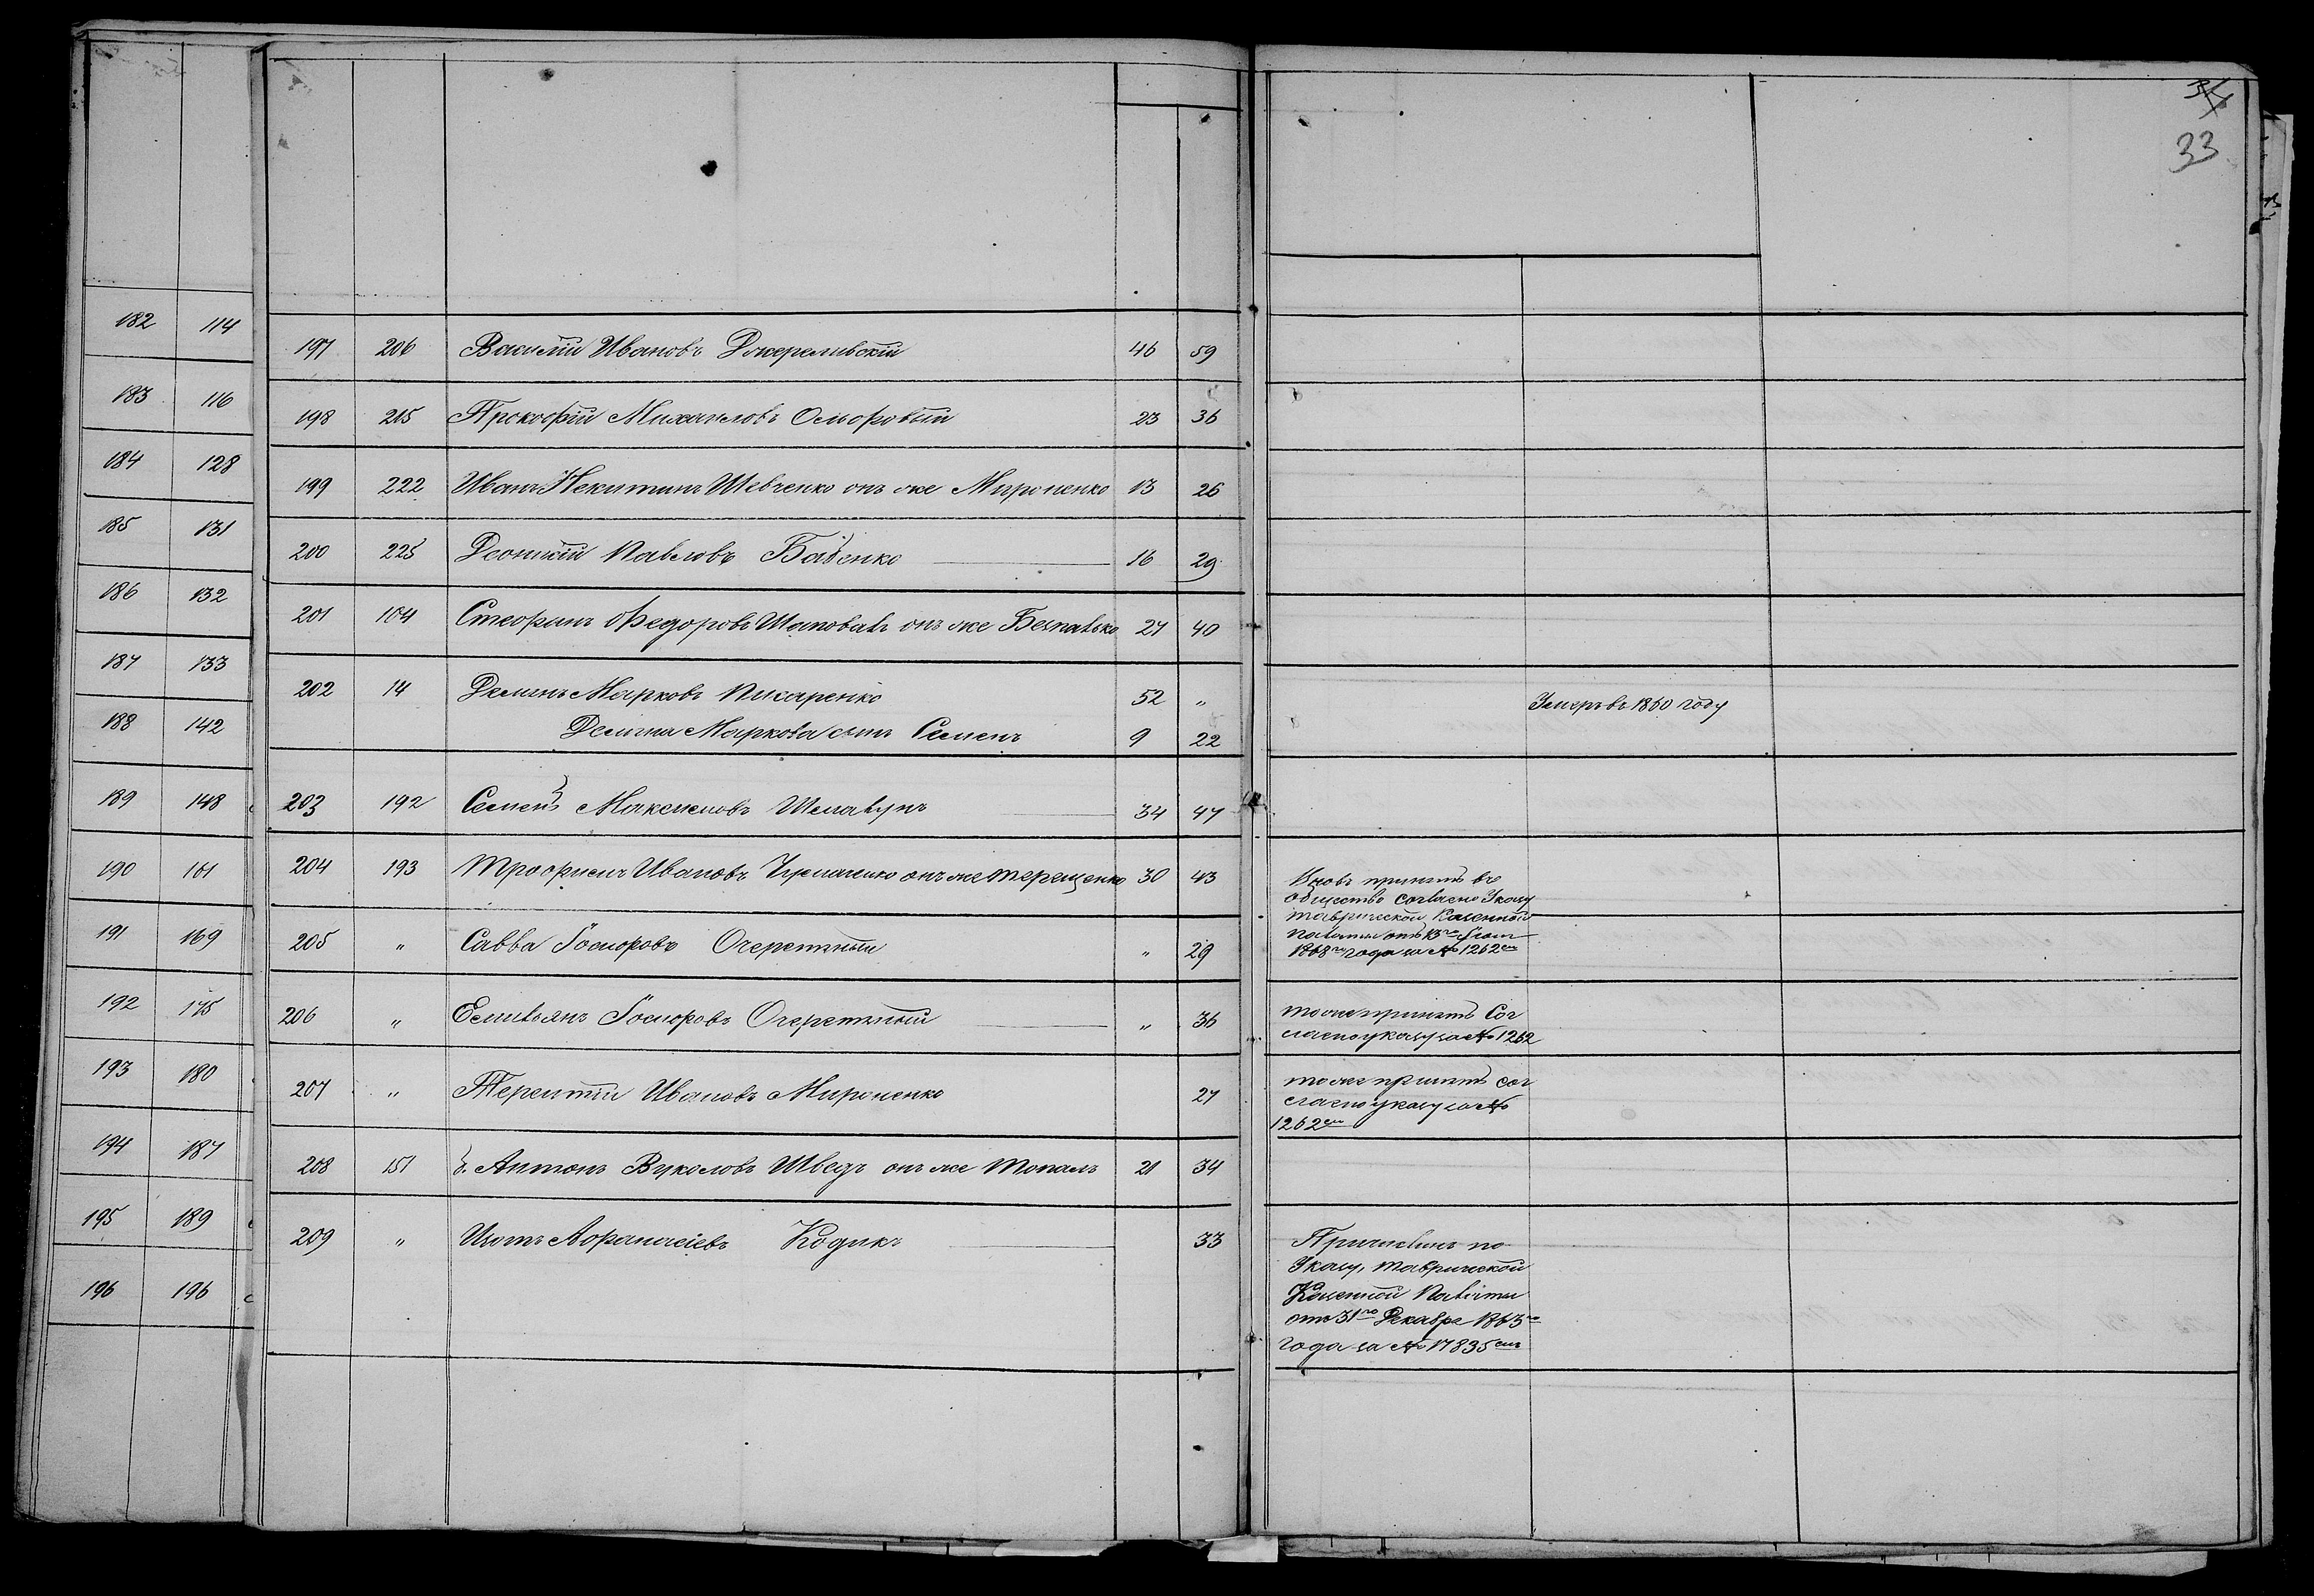 34
33
182 114
183 116
184 128
185 131
186 132
187 133
188 142
189 148
190 161
191 169
192 175
193 180
194 187
195 189
196 196
197 206 Василій Ивановъ Джереливскій 46 59
198 215 Прокофій Михаиловъ 23 36
199 222 Иванъ Некитинъ Шевченко онъ же Мироненко 13 26
200 225 Леонтій Павловъ Бабенко 16 29
201 104 Стефанъ Федоровъ Шаповалъ онъ же Безпалько 27 40
202 14 Демьнъ Марковъ Писаренко 52 „ Умеръ въ 1860 году
Демьна Маркова сынъ Семенъ 9 22
203 192 Семенъ Максимовъ 34 47
204 193 Трофимъ Ивановъ онъ же Терещенко 30 43
205 „ Савва Очеретный „ 29
Вновь принятъ въ
общество согласно Указу
таврической Казенной
палаты отъ 13го
1868го года за № 1262ем
206 „ Емильянъ Очеретный „ 36
тоже принятъ Сог
ласно указу за № 1262
207 „ Терентій Ивановъ Мироненко 27
тоже принятъ сог
ласно указу за №
1262ем
208 157 Антонъ Вуколовъ Шведъ онъ же Топалъ 21 34
209 „ Изотъ Афанасіевъ Кодикъ 33
Причисленъ по
Указу, таврической
Казенной Палаты
отъ 31го Декабре 1863го
года за № 17835емъ